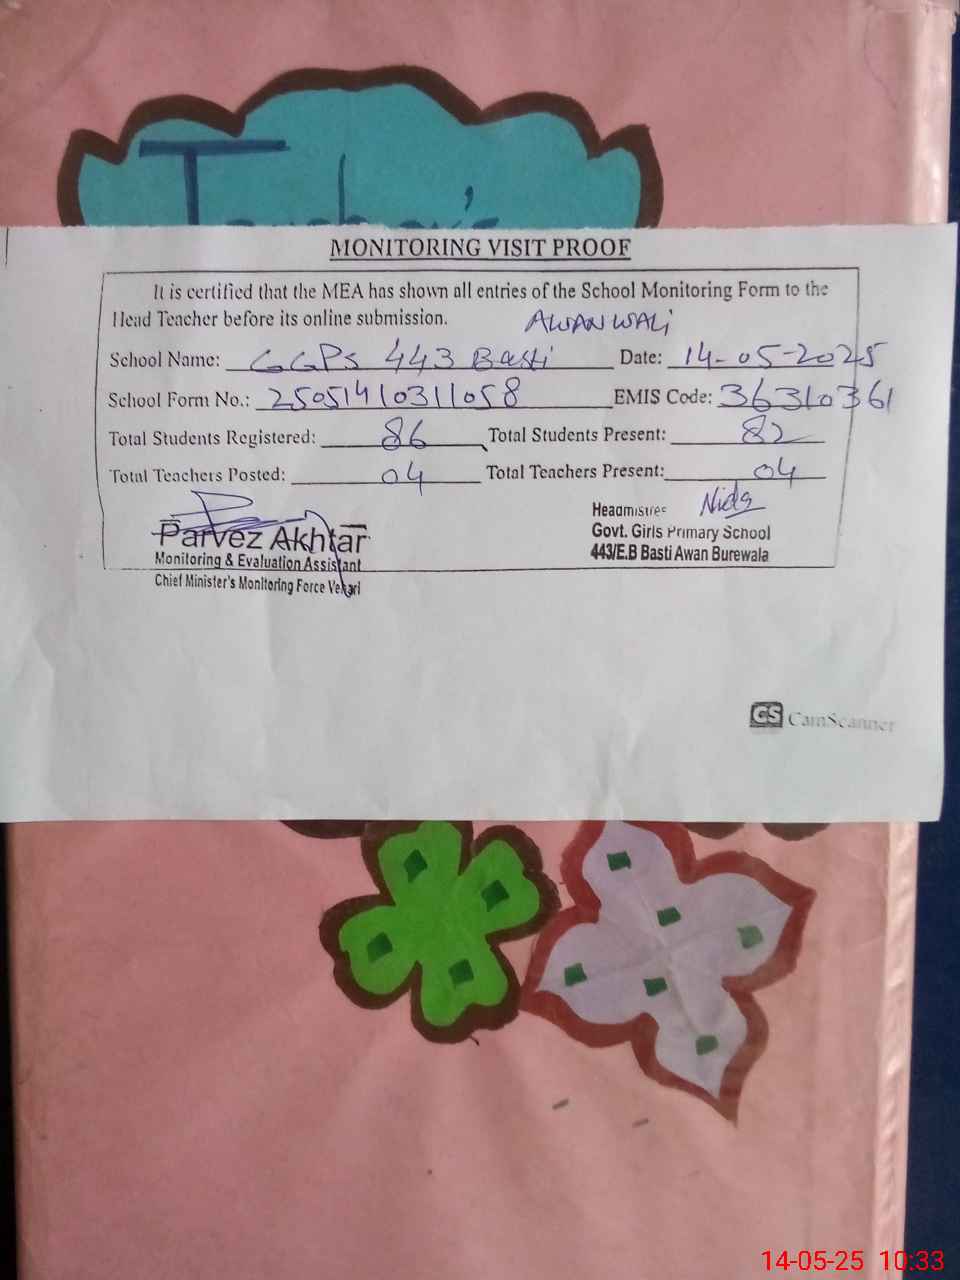 Teacher's
MONITORING VISIT PROOF
It is certified that the MEA has shown all entries of the School Monitoring Form to the
Head Teacher before its online submission. AWANWALI
School Name: GGPS 443 Basti Date: 14-05-2025
School Form No.: 25051410311058 EMIS Code: 36310361
Total Students Registered: 86 Total Students Present: 82
Total Teachers Posted: 04 Total Teachers Present: 04
Headmistres Nida
Parvez Akhtar Govt. Girls Primary School
Monitoring & Evaluation Assistant 443/E.B Basti Awan Burewala
Chief Minister's Monitoring Force Vehari
CS CamScanner
14-05-25 10:33